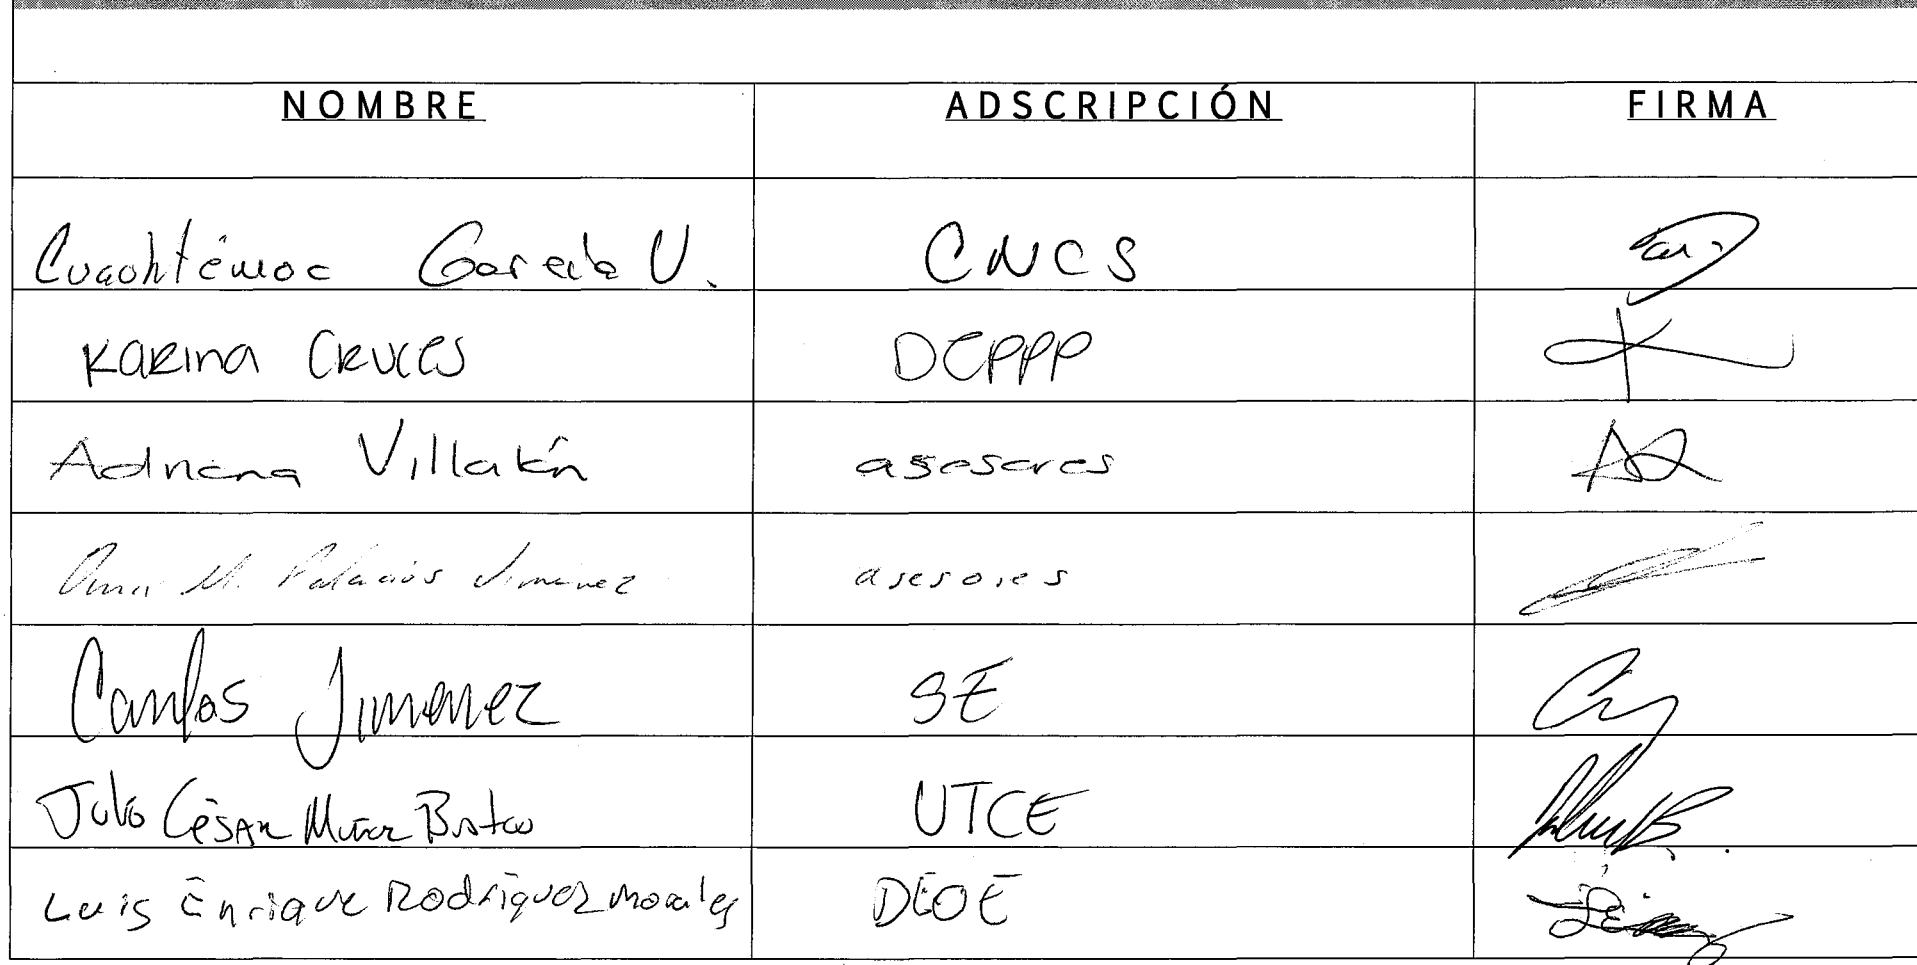 NOMBRE ADSCRIPCIÓN FIRMA
Cuaohtémoc García U. CNCS
KARINA CRUCES DEPPP
Adriana Villa asesores
M. Palacios Jiménez asesores
Carlos Jimenez SE
Julio César Muñoz UTCE
Luis Enrique Rodríguez Morales DEOE